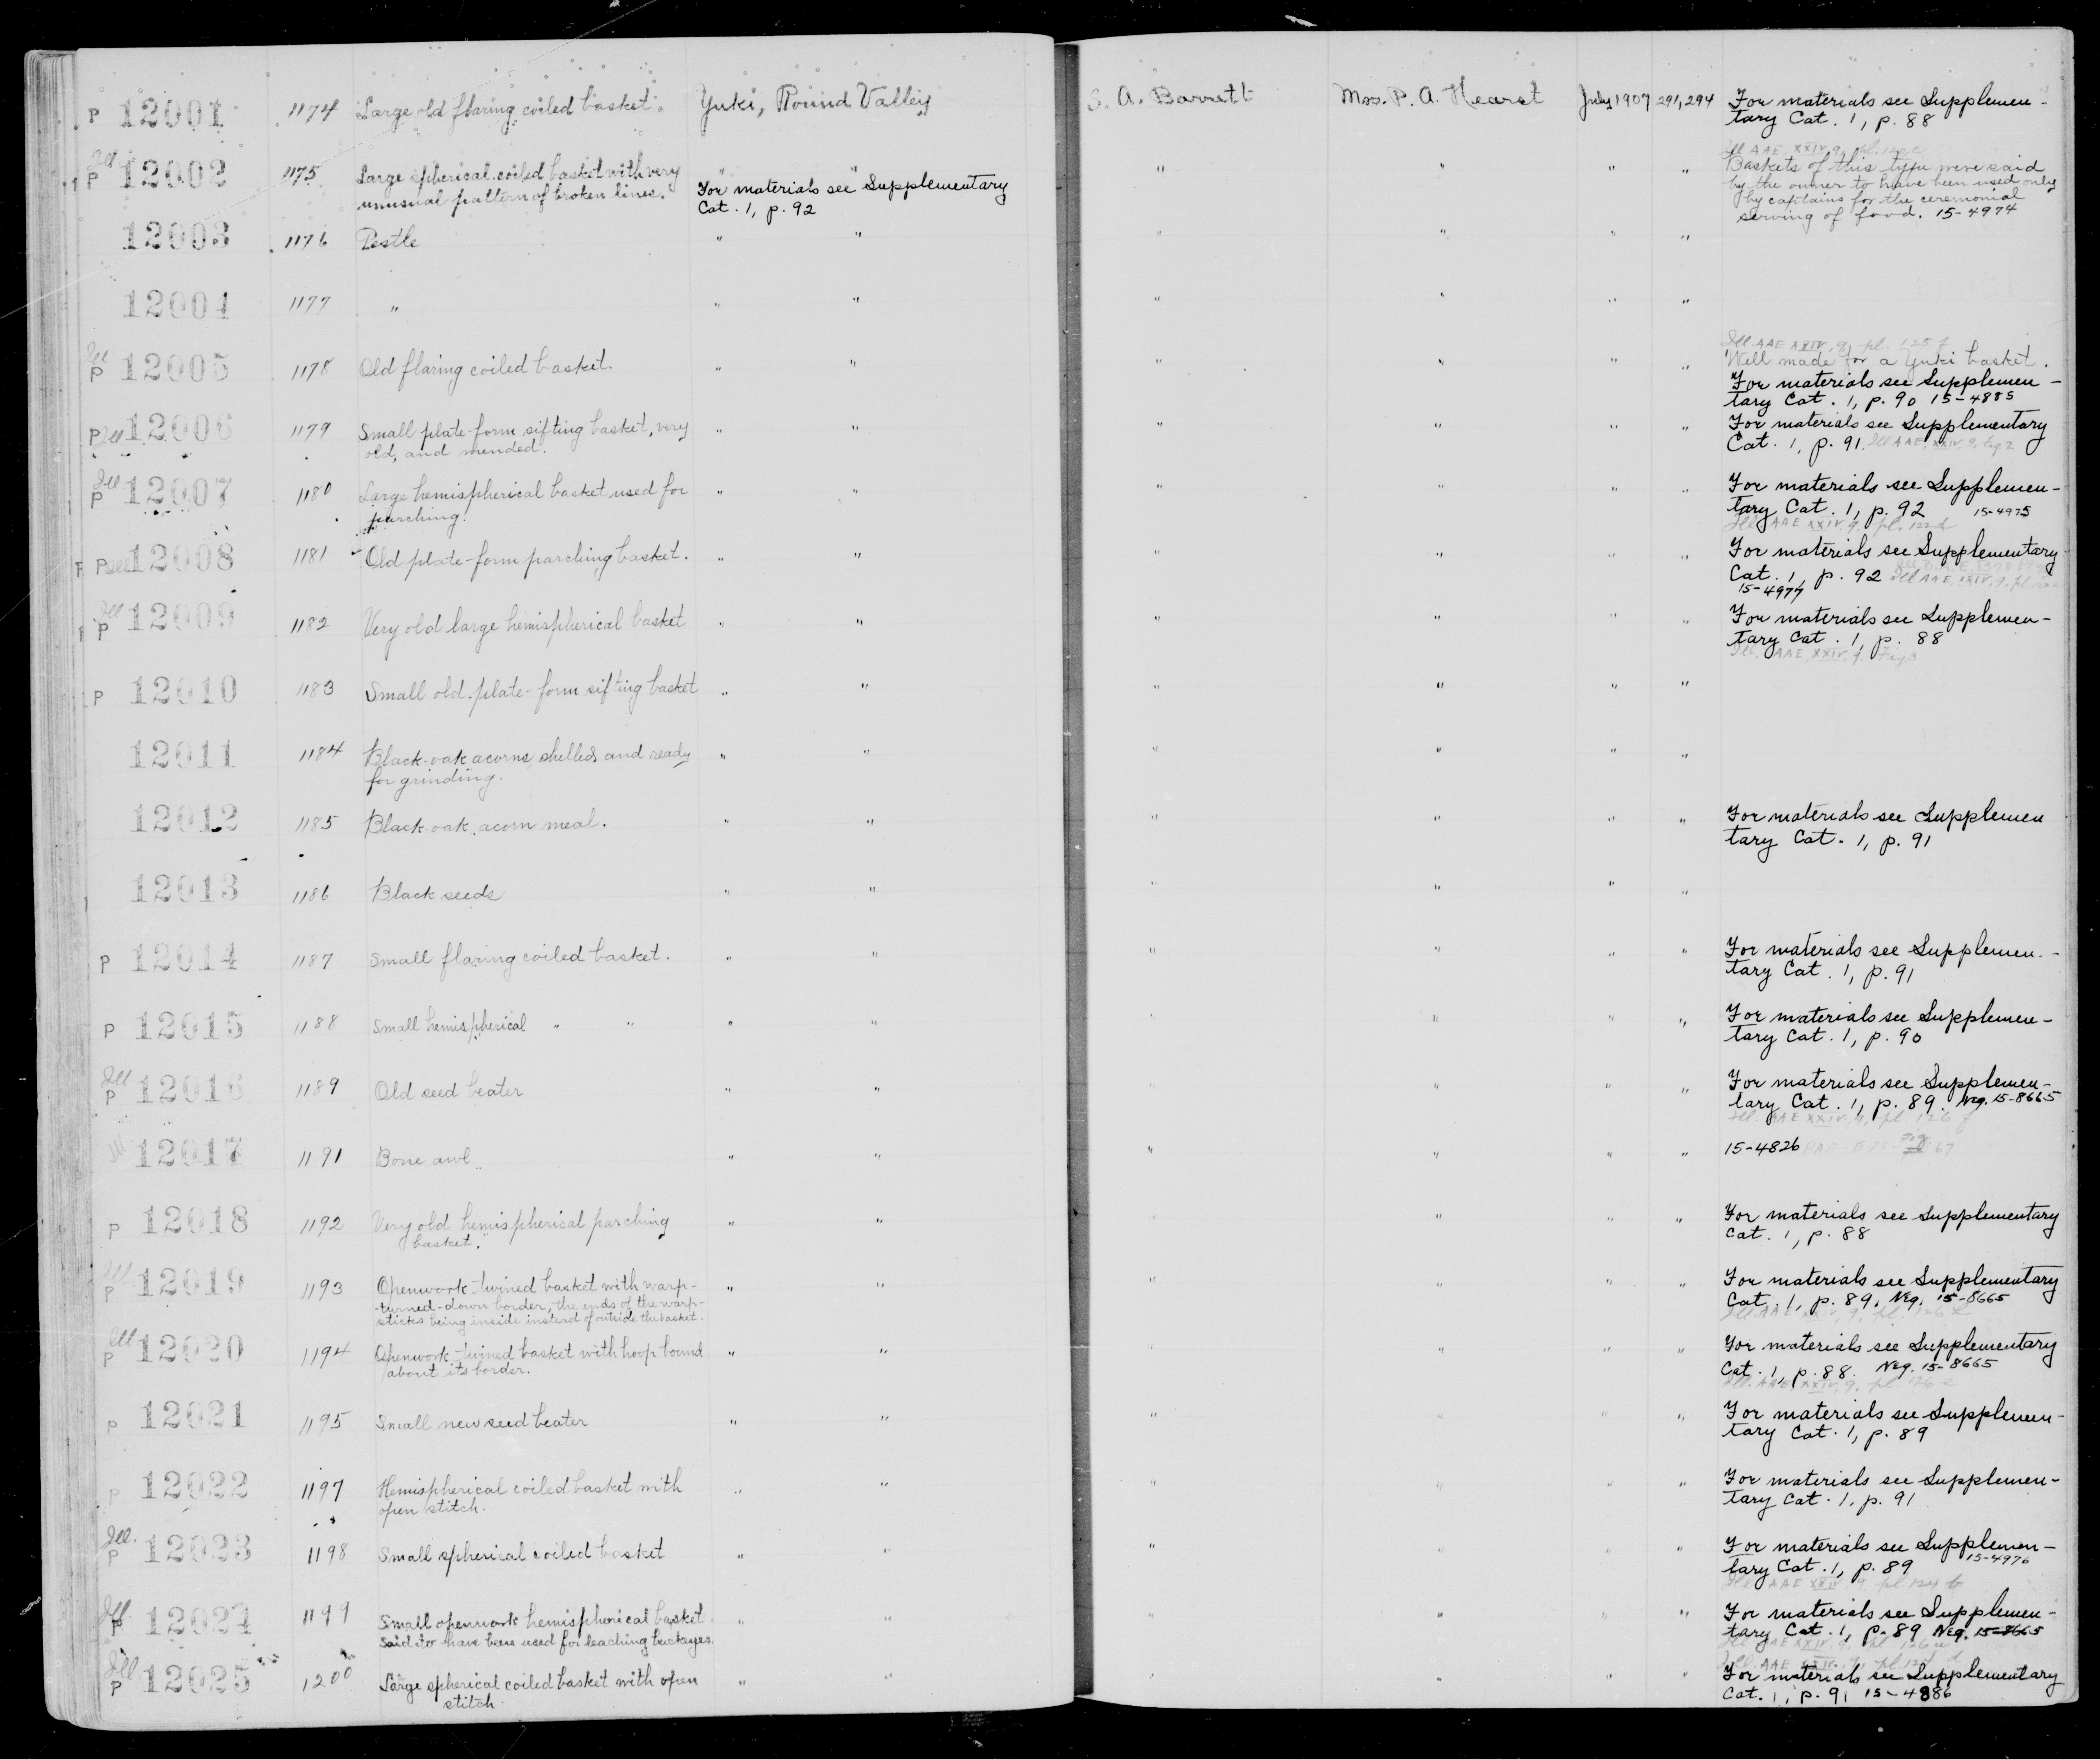 P 12001 1174 Large old flaring coiled basket. Yuki, Round Valley S. A. Barrett Mrs. P. A. Hearst July 1907 291, 294 For materials see Supplemen-
tary Cat. 1, p. 88
Ill P 12002 1175 Large spherical coiled basket with very " " " " " " Baskets of this type were said
unusual pattern of broken lines. For materials see Supplementary by the owner to have been used only
Cat. 1, p. 92 by captains for the ceremonial
serving of food. 15-4974
12003 1176 Pestle " " " " " "
12004 1177 " " " " " " "
Ill AAE XXIV, 9, pl. 125 f
Ill P 12005 1178 Old flaring coiled basket. " " " " " " Well made for a Yuki basket.
For materials see Supplemen-
tary Cat. 1, p. 90 15-4885
P Ill 12006 1179 Small plate-form sifting basket, very " " " " " " For materials see Supplementary
old, and mended. Cat. 1, p. 91. Ill AAE, XXIV, 9, Fig 2
Ill P 12007 1180 Large hemispherical basket used for " " " " " " For materials see Supplemen-
parching. tary Cat. 1, p. 92 15-4975
Ill AAE XXIV, 9, pl. 122 d
P Ill 12008 1181 Old plate-form parching basket. " " " " " " For materials see Supplementary
Cat. 1, p. 92 Ill AAE, XXIV, 9, pl.
15-4977
Ill P 12009 1182 Very old large hemispherical basket " " " " " " For materials see Supplemen-
tary Cat. 1, p. 88
Ill. AAE XXIV, 9, Fig 3
P 12010 1183 Small old plate-form sifting basket " " " " " "
12011 1184 Black-oak acorns, shelled and ready " " " " " "
for grinding.
12012 1185 Black oak acorn meal. " " " " " " For materials see Supplemen
tary Cat. 1, p. 91
12013 1186 Black seeds " " " " " "
P 12014 1187 Small flaring coiled basket. " " " " " " For materials see Supplemen-
tary Cat. 1, p. 91
P 12015 1188 Small hemispherical " " " " " " " " For materials see Supplemen-
tary Cat. 1, p. 90
Ill P 12016 1189 Old seed beater " " " " " " For materials see Supplemen-
tary Cat. 1, p. 89. Neg. 15-8665
Ill. AAE XXIV, 9, pl. 126 f
Ill 12017 1191 Bone awl " " " " " " 15-4826
P 12018 1192 Very old hemispherical parching " " " " " " For materials see Supplementary
basket. Cat. 1, p. 88
Ill P 12019 1193 Openwork-twined basket with warp- " " " " " " For materials see Supplementary
turned-down border, the ends of the warp- Cat. 1, p. 89. Neg. 15-8665
sticks being inside instead of outside the basket.
Ill P 12020 1194 Openwork-twined basket with hoop bound " " " " " " For materials see Supplementary
about its border. Cat. 1, p. 88. Neg. 15-8665
Ill. AAE XXIV, 9, pl 126 e
P 12021 1195 Small new seed beater " " " " " " For materials see Supplemen-
tary Cat. 1, p. 89
P 12022 1197 Hemispherical coiled basket with " " " " " " For materials see Supplemen-
open stitch. tary Cat. 1, p. 91
Ill. P 12023 1198 Small spherical coiled basket " " " " " " For materials see Supplemen-
tary Cat. 1, p. 89 15-4976
Ill AAE XXIV 9, pl. 124 b
Ill P 12024 1199 Small openwork hemispherical basket " " " " " " For materials see Supplemen-
said to have been used for leaching buckeyes. tary Cat. 1, p. 89 Neg. 15-8665
Ill P 12025 1200 Large spherical coiled basket with open " " " " " " For materials see Supplementary
stitch Cat. 1, p. 91 15-4886